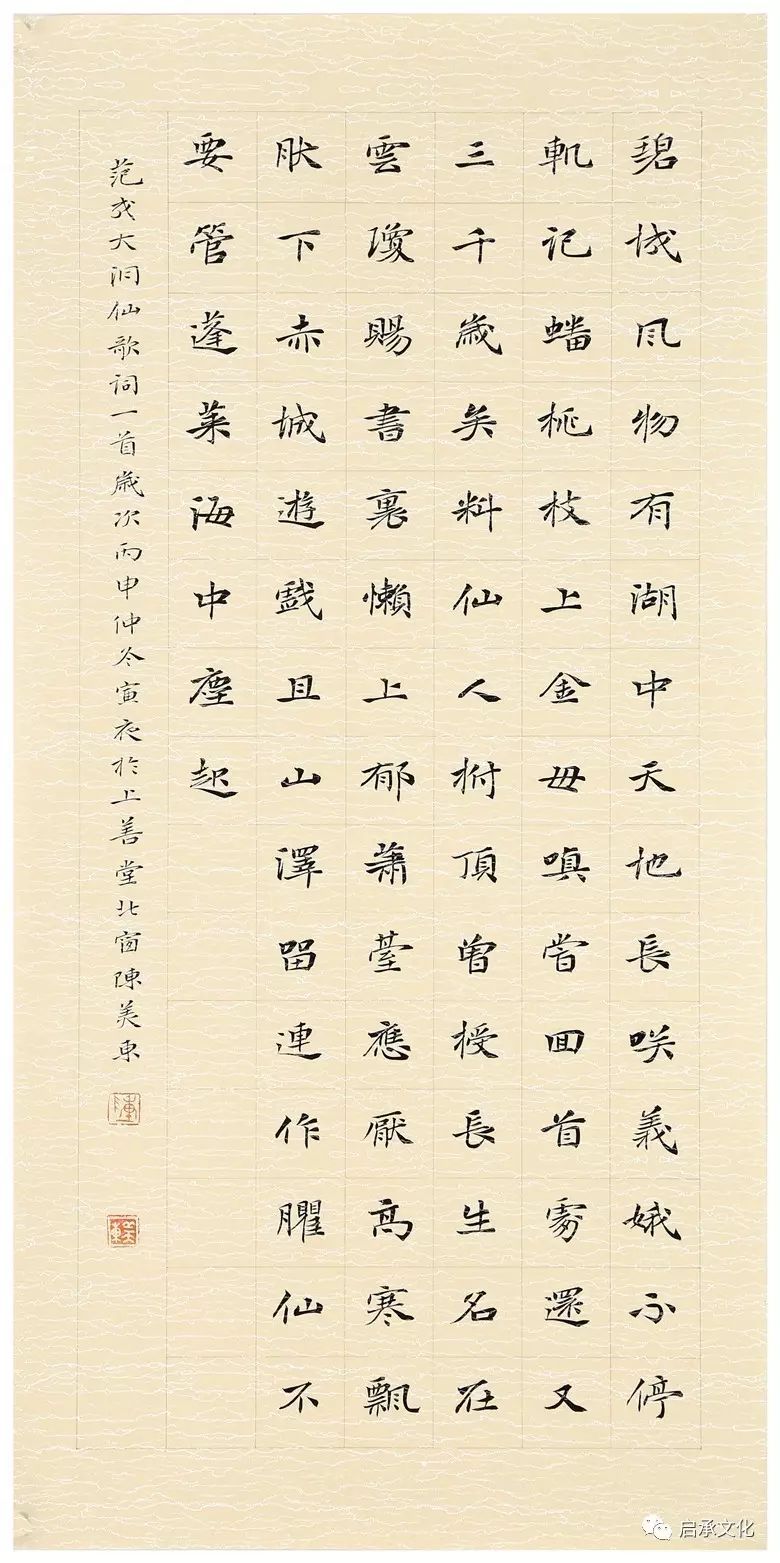 碧城風物有湖中天地長咲義娥不停
軌記蟠桃枝上金毋嗔嘗回首處還又
三千歲矣料仙人拊頂曾授長生名在
雲瓊賜書裏懶上郁蕭臺應厭高寒飄
肰下赤城遊戲且山澤留連作臞仙不
要管蓬萊海中塵起
范成大洞仙歌詞一首歲次丙申仲冬寅夜於上善堂北窗陳美東
启承文化